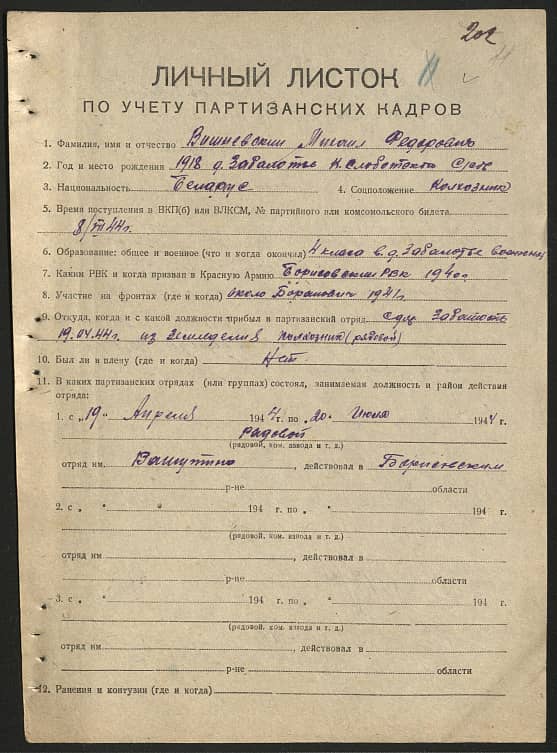 202
ЛИЧНЫЙ ЛИСТОК
ПО УЧЕТУ ПАРТИЗАНСКИХ КАДРОВ
1. Фамилия, имя и отчество Вишневский Михаил Федорович
2. Год и место рождения 1918 д. Забалотье
3. Национальность Беларус 4. Соцположение Колхозник
5. Время поступления в ВКП(б) или ВЛКСМ, № партийного или комсомольского билета
8/III 44 г.
6. Образование: общее и военное (что и когда окончил) 4 класа в д. Забалотье
7. Каким РВК и когда призван в Красную Армию Борисовским РВК 1940 г.
8. Участие на фронтах (где и когда) около 1941 г.
9. Откуда, когда и с какой должности прибыл в партизанский отряд с дер.
19.04.44 г. из колхозник (рядовой)
10. Был ли в плену (где и когда) Нет
11. В каких партизанских отрядах (или группах) состоял, занимаемая должность и район действия
отряда:
1. с „19” Апреля 1944 г. по „20” Июня 1944 г.
Рядовой
(рядовой, ком. взвода и т. д.)
отряд им. , действовал в Борисовским
р-не области
2. с „ ” 194 г. по „ ” 194 г.
(рядовой, ком. взвода и т. д.)
отряд им , действовал в
р-не области
3. с „ ” 194 г. по „ ” 194 г.
(рядовой, ком. взвода и т. д.)
отряд им , действовал в
р-не области
12. Ранения и контузии (где и когда)